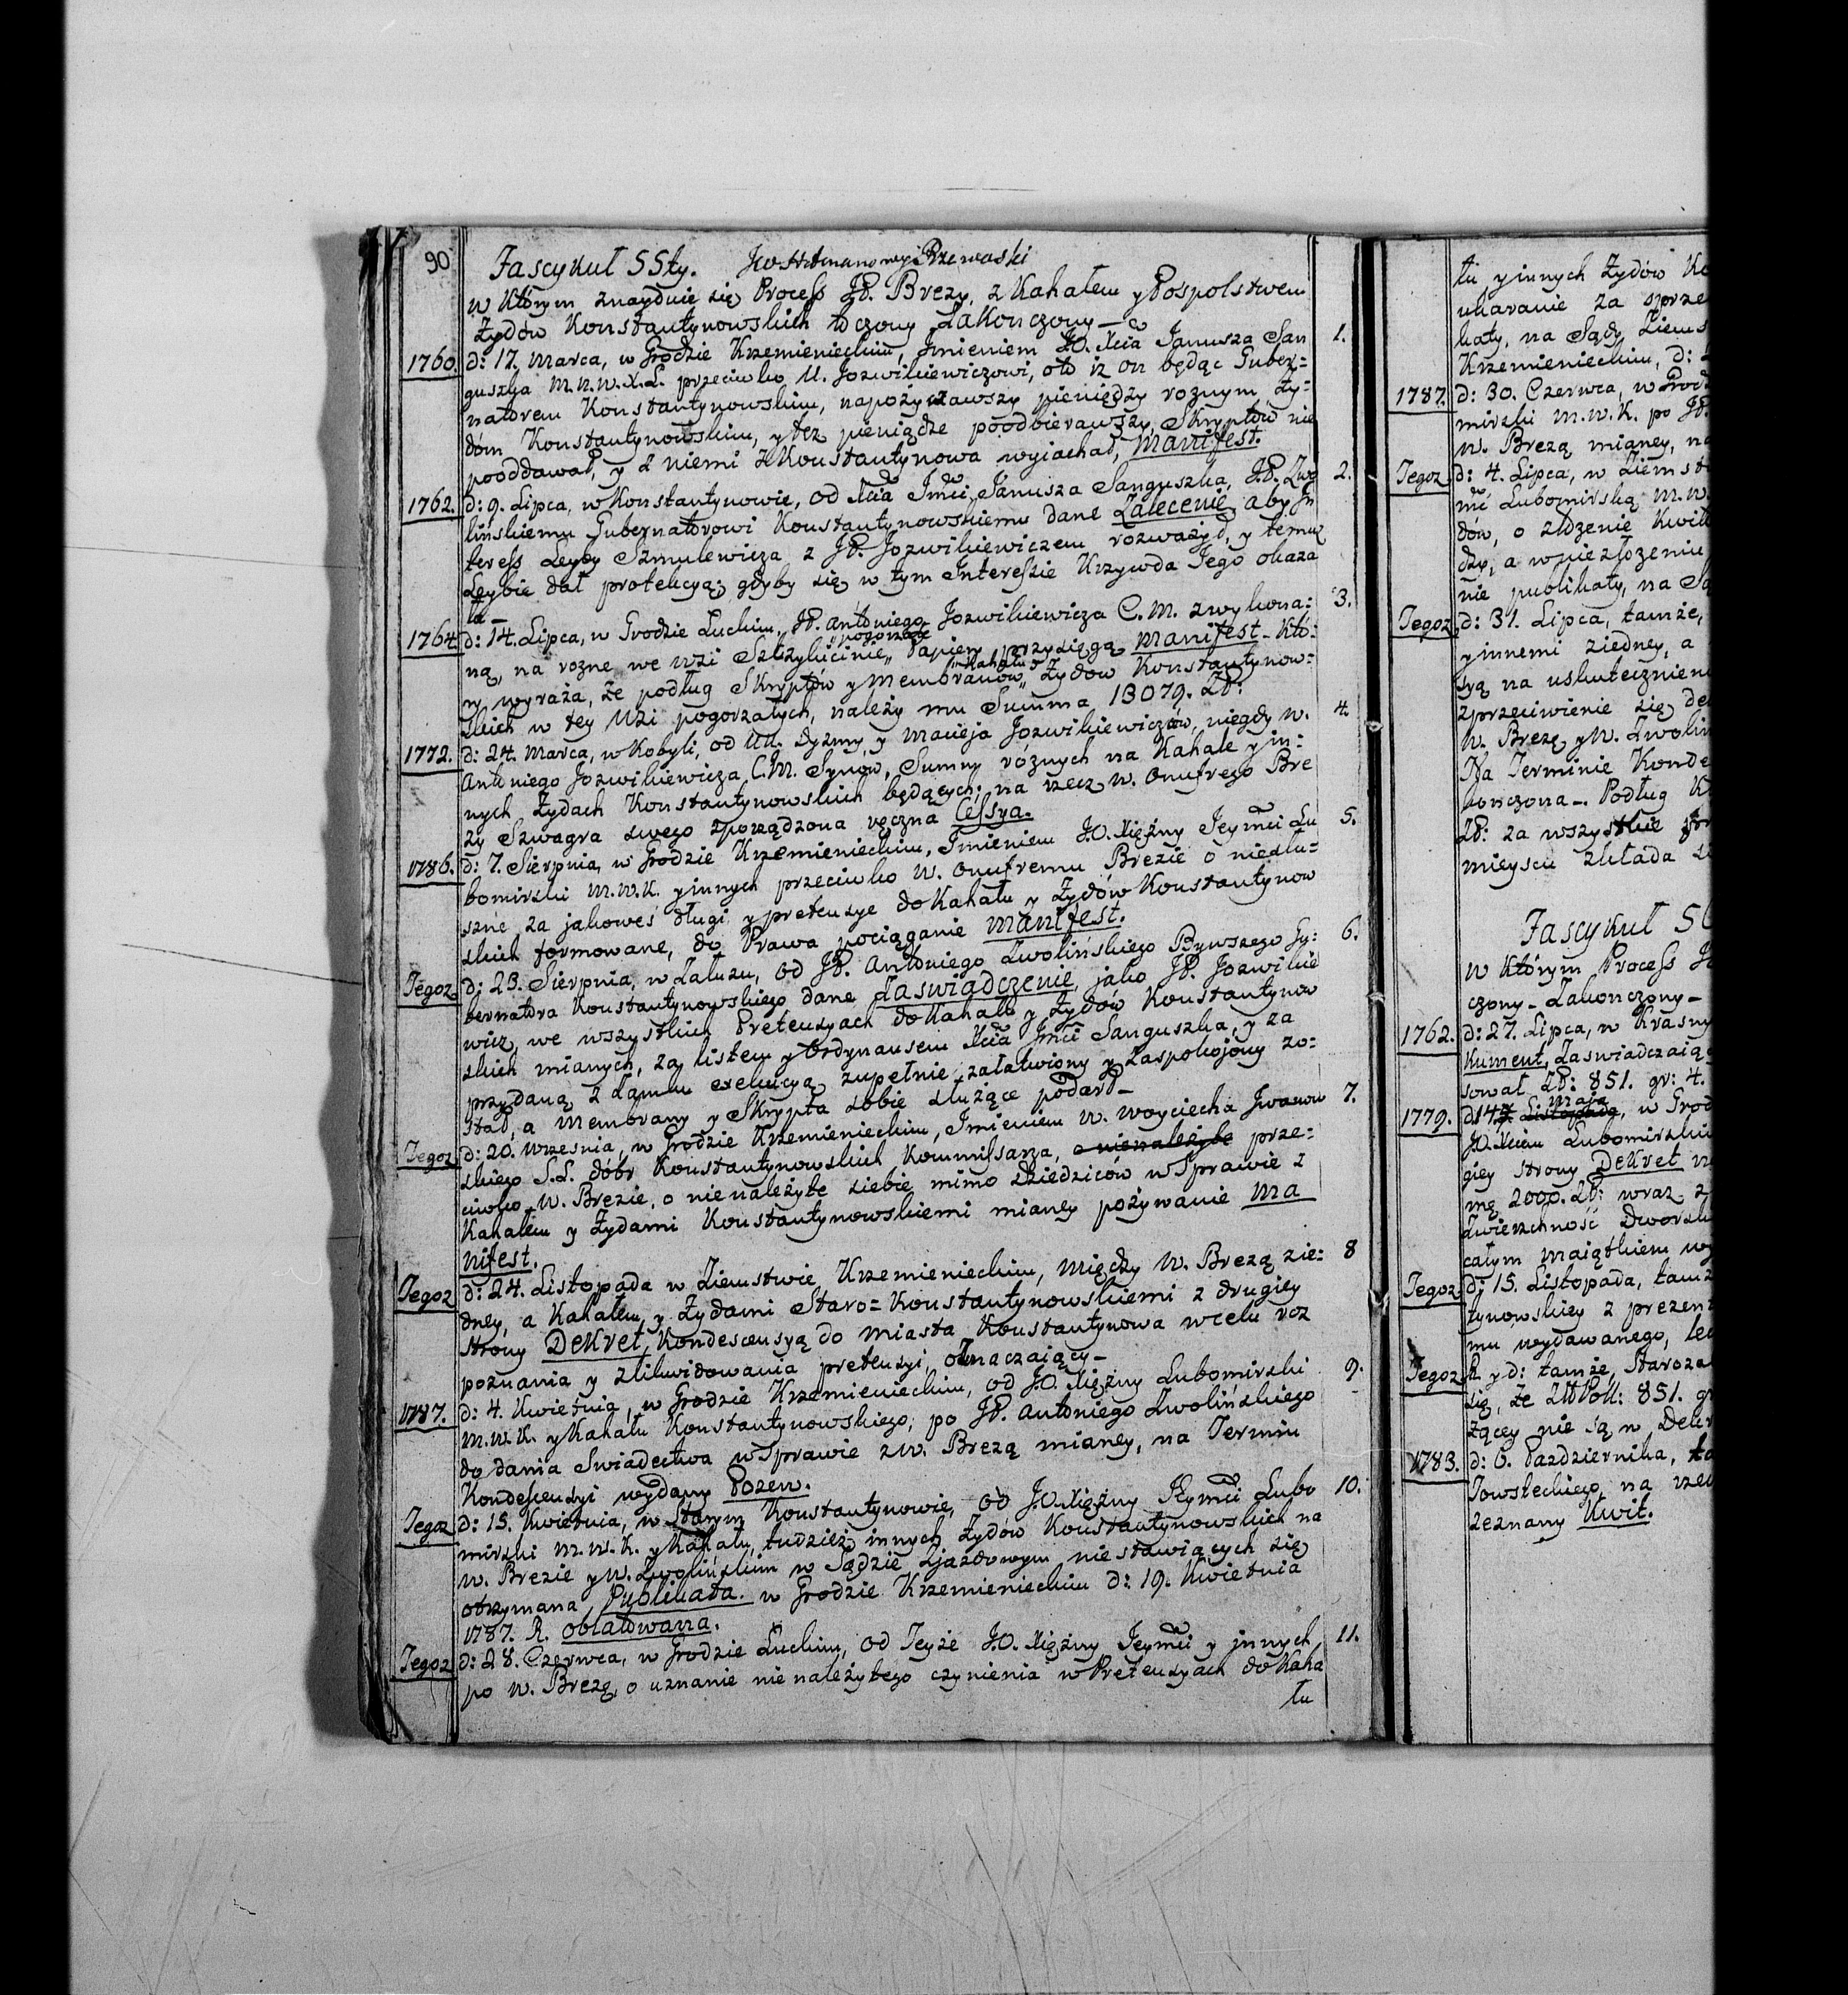 90
Fascykuł 55ty. JW Hetmanowy Rzewuski
w którym znayduie się Process JP. Brezy, z Kahałem y Pospolstwem
Żydów Konstantynowskich toczony Zakonczony —
1760. d: 17. Marca, w Grodzie Krzemienieckim, Jmieniem J.O. Xcia Janusza San 1.
guszka M.N.W.X.L. przeciwko U. Jozwikiewiczowi, oto iż on będąc Guber=
natorem Konstantynowskim, napożyczawszy pieniędzy roznym Ży=
dom Konstantynowskim, y też pieniądze poodbierawszy, Skryptów nie
pooddawał, y z niemi z Konstantynowa wyiachał, Manifest.
1762. d: 9. Lipca, w Konstantynowie, od Xcia Jmci Janusza Sanguszka, JP. Zwo 2.
lińskiemu Gubernatorowi Konstantynowskiemu dane Zalecenie, aby Jn
teress Leyby Szmulewicza z JP. Jozwikiewiczem rozważył, y temuż
Leybie dał protekcyą; gdyby się w tym Interessie Krzywda Jego okaza
ła —
1764. d: 14. Lipca, w Grodzie Łuckim, JP. Antoniego Jozwikiewicza C.M. z wykona= 3.
ną, na rozne we wsi Szczylicinie „pogorzałe Papiery przysięgą Manifest — Któ=
ry wyraża, że podług Skryptów y Membranów „Kahału y Żydow Konstantynow=
skich w tey Wsi pogorzałych, należy mu Summa 13079. Zł:
1772. d: 24. Marca, w Kobyli, od UU. Dyzmy y Macieja Jozwikiewiczów, niegdy W. 4.
Antoniego Jozwikiewicza C.M. Synow, Summ róznych na Kahale y in=
nych Żydach Konstantynowskich będących; na rzecz W. Onufrego Bre
zy Szwagra swego zporządzona ręczna Cessya.
1786. d: 7. Sierpnia, w Grodzie Krzemienieckim, Jmieniem J.O. Xiężny Jeymci Lu 5.
bomirski M.W.K. y innych przeciwko W. Onufremu Brezie o niesłu=
szne za jakoweś długi y pretensye do Kahału y Żydów Konstantynow
skich formowane, do Prawa pociąganie Manifest.
Tegoz d: 23. Sierpnia, w Zaluzu, od JP. Antoniego Zwolińskiego Bywszego Gu= 6.
bernatora Konstantynowskiego dane Zaswiadczenie, jako JP. Jozwikie
wicz, we wszystkich Pretensyach do Kahału y Żydów Konstantynow
skich mianych, za listem y Ordynansem Xcia Jmci Sanguszka, y za
przydaną z Zamku exekucyą zupełnie załatwiony y Zaspokojony zo=
stał, a Membrany y Skrypta sobie służące podarł —
Tegoz d: 20. Wrzesnia, w Grodzie Krzemienieckim, Jmieniem W. Woyciecha Jwanow 7.
skiego S.L. dóbr Konstantynowskich Kommissarza, o nienależyte prze=
ciwko W. Brezie, o nienależyte siebie mimo Dziedziców w Sprawie z
Kahałem y Żydami Konstantynowskiemi mianey pożywanie Ma
nifest.
Tegoz d: 24. Listopada w Ziemstwie Krzemienieckim, między W. Brezą zie= 8
dney, a Kahałem y Żydami Staro=Konstantynowskiemi z drugiey
strony Dekret, Kondescensyą do miasta Konstantynowa w celu roz
poznania y zlikwidowania pretensyi, oznaczaiący —
1787. d: 4. Kwietnia, w Grodzie Krzemienieckim, od J.O. Xiężny Lubomirski 9.
M.W.K. y Kahału Konstantynowskiego, po JP. Antoniego Zwolińskiego
do dania Swiadectwa w Sprawie z W. Brezą mianey, na Termin
Kondescensyi wydany Pozew.
Tegoz d: 15. Kwietnia, w Starym Konstantynowie, od J.O. Xiężny Jeymci Lubo 10.
mirski M.W.K. y Kahału, tudzież innych Żydów Konstantynowskich na
W. Brezie y W. Zwolińskim w Sądzie Zjazdowym niestawiących się
otrzymana Publikata. w Grodzie Krzemienieckim d: 19. Kwietnia
1787. R. oblatowana.
Tegoz d: 28. Czerwca, w Grodzie Łuckim, od Teyże J.O. Xiężny Jeymci y jnnych 11.
po W. Brezę, o uznanie nienależytego czynienia w Pretensyach do Kaha
łu
łu y innych Żydów Ko
ukaranie za sprze
katy, na Sądy Ziems
Krzemienieckim, d:
1787. d: 30. Czerwca, w Grod
mirski M.W.K. po JP.
W. Brezą mianey, na
Tegoz d: 4. Lipca, w Ziemst
mć Lubomirską M.W.
dów, o złożenie Kwit
dzy, a w niezłożeniu
nie publikaty, na Są
Tegoz d: 31. Lipca, tamże,
y innemi ziedney, a
syą na uskutecznien
zprzeciwienie się De
W. Brezę y W. Zwoliń
Na Terminie Konde
kończona —. Podług K
Zł: za wszystkie
mieyscu Zkłada
Fascykuł 5
w którym Process J
czony — Zakonczony —
1762. d: 27. Lipca, w Krasny
kument, Zaswiadczaią
sował Zł: 851. gr: 4.
1779. d: 14 Maja Listopada, w Grod
J.O. Xciem Lubomirski
giey strony Dekret
mę 2000. Zł: wraz z
Zwierzchność Dworsk
całym maiątkiem wy
Tegoz d: 15. Listopada, tamż
tynowskiey z prezent
mu wydawanego,
Tegoz R. y d: tamże, Staroza
się, że Złł Poll: 851. g
żącey nie są w Dekr
1783. d: 6. Pazdziernika,
Towsteckiego, na rzec
zeznany Kwit.